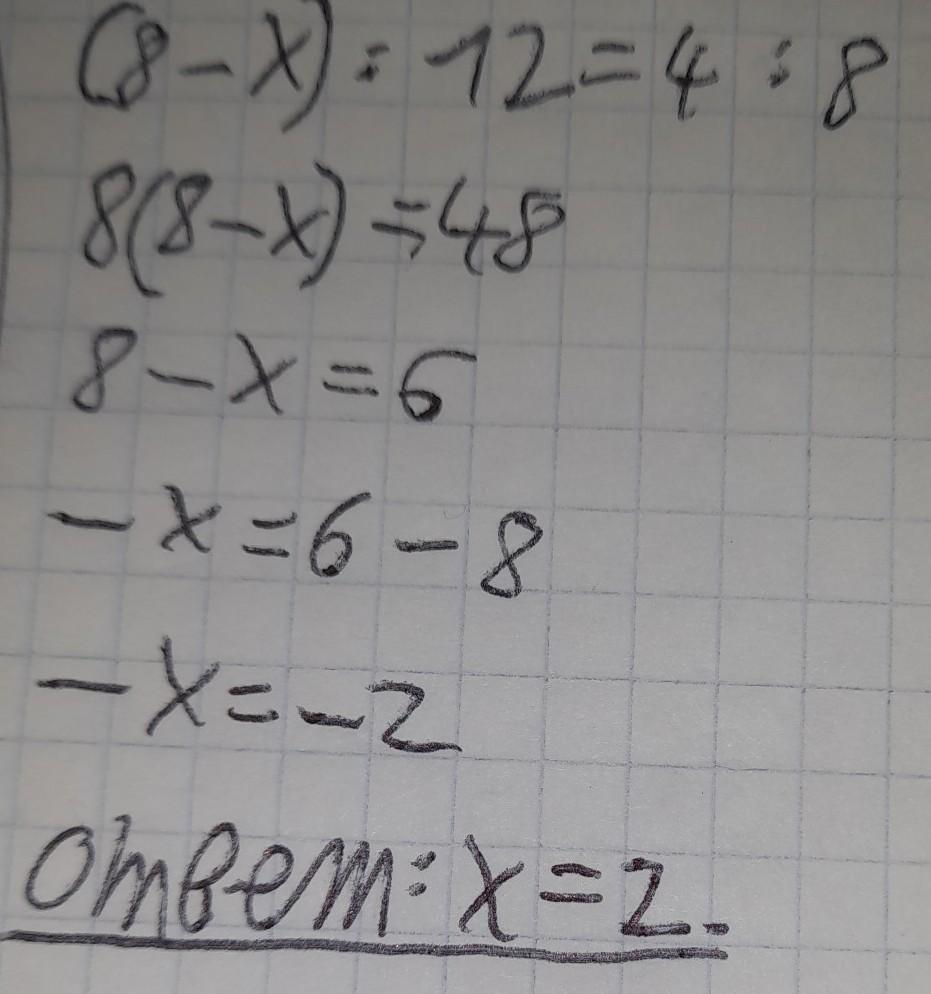 (8-x):12=4:8
8(8-x)=48
8-x=6
-x=6-8
-x=-2
Ответ: x=2.